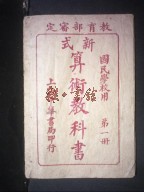 教育部審定
新式
國民學校用 第一冊
算術教科書
上海
書局印行